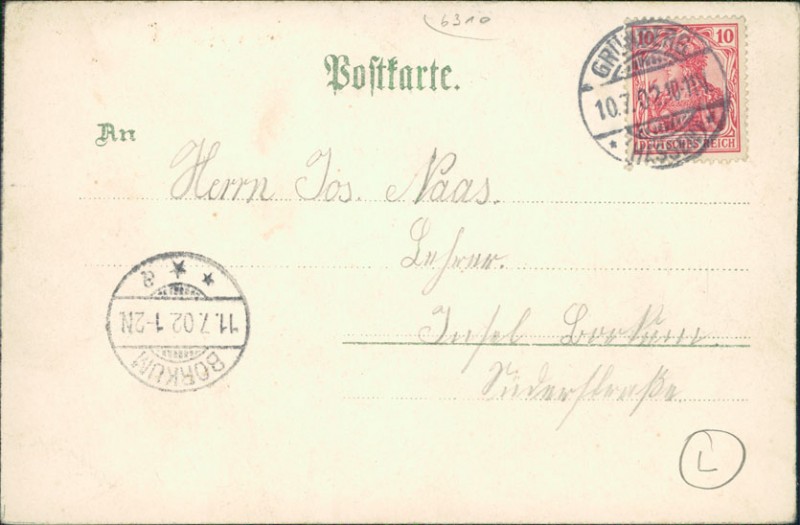 6310
Postkarte.
10 10
DEUTSCHES REICH
GRÜNBERG
10.7.02.10-11V.
* HESSEN *
An
Herrn Jos. Naas.
Lehrer.
Insel Borkum.
Süderstraße.
BORKUM
11.7.02 1-2N
* * a
L